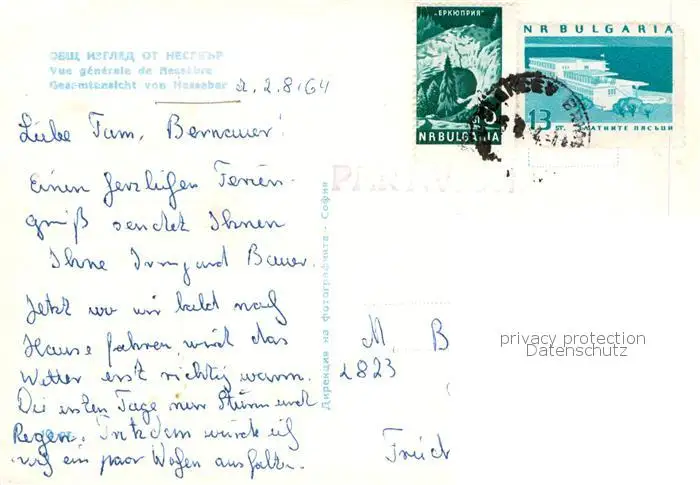 ОБЩ ИЗГЛЕД ОТ НЕСЕБЪР
Vue générale de Nesebre
Gesamtansicht von Nessebar
2.8.64
Liebe Fam. Bernauer!
Einen herzlichen Ferien-
gruß sendet Ihnen
Ihre Irmgard Bauer.
Jetzt wo wir bald nach
Hause fahren, wird das
Wetter erst richtig warm.
Die ersten Tage nur Sturm und
Regen. Trotzdem würde ich
noch ein paar Wochen aushalten.
Дирекция на фотографията - София
"ЕРКЮПРИЯ"
NR BULGARIA
NR BULGARIA
13 ST.
ЗЛАТНИТЕ ПЯСЪЦИ
M. B
2823
Früch
privacy protection
Datenschutz